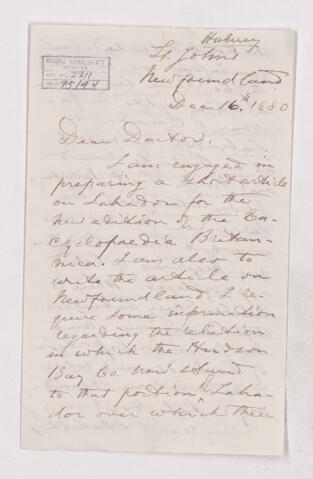 Harvey
St John's
Newfoundland
Dec 16.th 1880
Dear Doctor,
I am engaged in
preparing a short article
on Labrador for the
new edition of the En-
cyclopaedia Britan-
nica. I am also to
write the article on
Newfoundland. I re-
quire some information
regarding the relation
in which the Hudson
Bay Co. now stand
to that portion Labra-
dor over which their